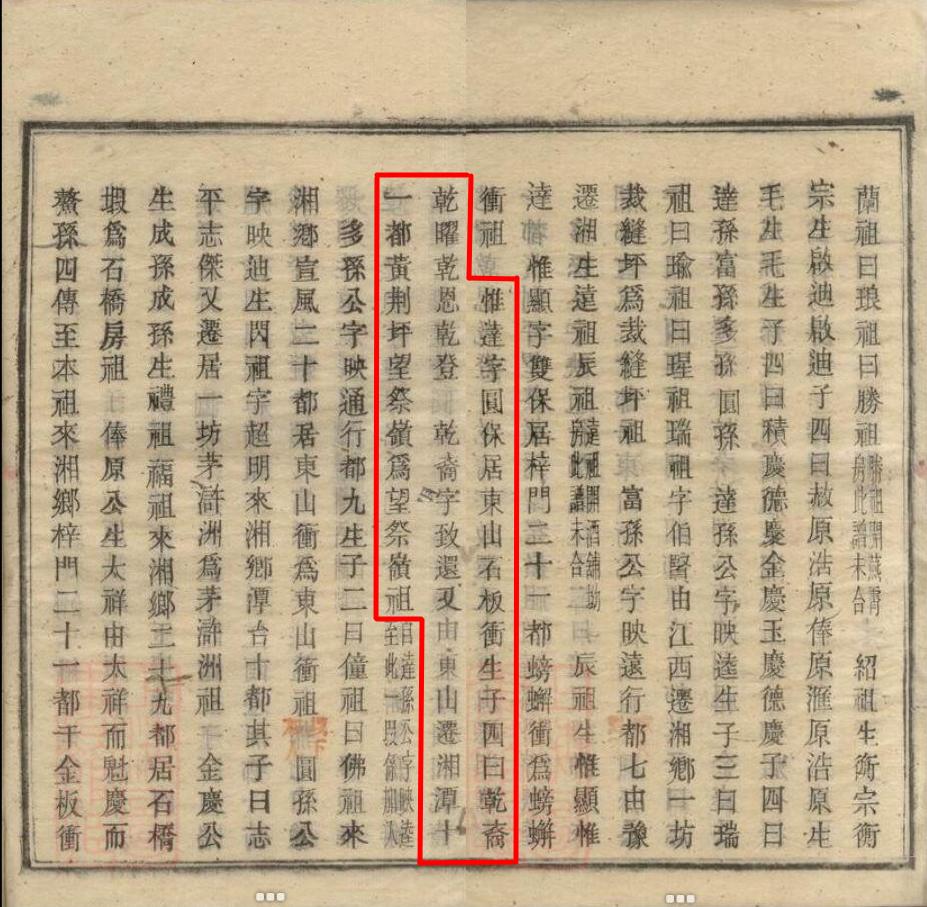 蘭祖曰琅祖曰勝祖勝祖開蕉霄房此譜未合 紹祖生衡宗衡
宗生啟迪啟迪子四曰赦原浩原俸原滙原浩原生
毛生毛生子四曰積慶德慶金慶玉慶德慶子四曰
達孫富孫多孫圓孫 達孫公字映逵生子三曰瑞
祖曰瑜祖曰瑆祖瑞祖字伯賢由江西遷湘鄉一坊
裁縫坪爲裁縫坪祖 富孫公字映遠行都七由豫
遷湘生遠祖辰祖遠祖開酒舖坳房此譜未合 辰祖生惟顯惟
達 惟顯字雙保居梓門二十一都螃蠏衝爲螃蠏
衝祖 惟達字圓保居東山石板衝生子四曰乾裔
乾曜乾恩乾登 乾裔字致還又由東山遷湘潭十
一都黃荆坪望祭嶺爲望祭嶺祖自達孫公字映逵至此一段係添入
多孫公字映通行都九生子二曰僮祖曰佛祖來
湘鄉宣風二十都居東山衝爲東山衝祖 圓孫公
字映迪生閃祖字超明來湘鄉潭台十都其子曰志
平志傑又遷居一坊茅滸洲爲茅滸洲祖 金慶公
生成孫成孫生禮祖福祖來湘鄉三十九都居石橋
塅爲石橋房祖 俸原公生大祥由大祥而魁慶而
鰲孫四傳至本祖來湘鄉梓門二十一都干金板衝